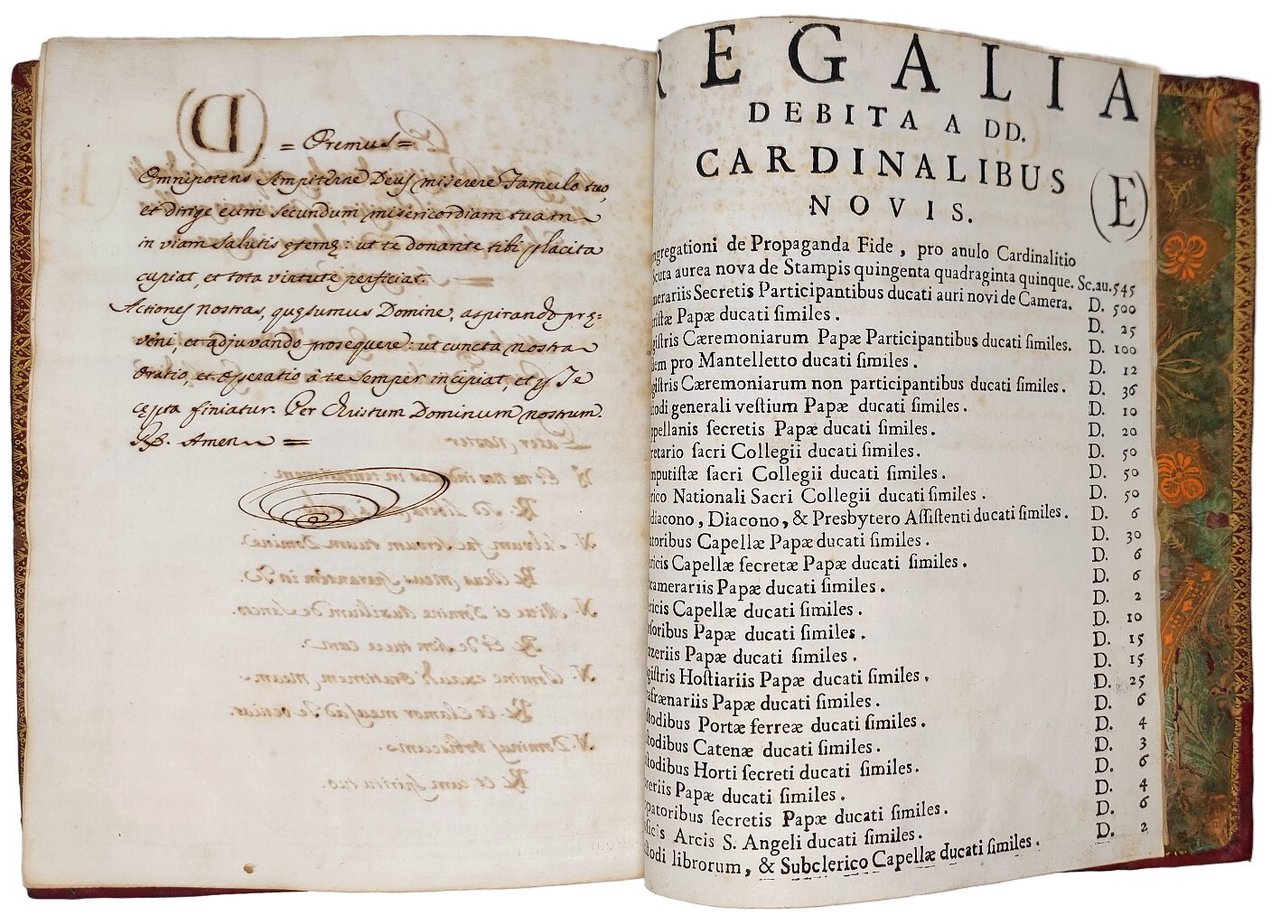 (D)
= Oremus =
Omnipotens Sempiterne Deus miserere Famulo tuo,
et dirige eum secundum misericordiam tuam
in viam salutis ęternę: ut te donante tibi placita
cupiat, et tota virtute perficiat.
Actiones nostras, quęsumus Domine, aspirando prę-
veni, et adjuvando prosequere: ut cuncta nostra
Oratio, et Operatio à te semper incipiat, et p Te
cępta finiatur. Per Christum Dominum nostrum.
R. Amen =
REGALIA
DEBITA A DD.
CARDINALIBUS
NOVIS.
(E)
ngregationi de Propaganda Fide, pro anulo Cardinalitio
Scuta aurea nova de Stampis quingenta quadraginta quinque. Sc.au. 545
merariis Secretis Participantibus ducati auri novi de Camera. D. 500
ristæ Papæ ducati ſimiles. D. 25
giſtris Cæremoniarum Papæ Participantibus ducati ſimiles. D. 100
dem pro Mantelletto ducati ſimiles. D. 12
giſtris Cæremoniarum non participantibus ducati ſimiles. D. 36
todi generali veſtium Papæ ducati ſimiles. D. 10
ppellanis ſecretis Papæ ducati ſimiles. D. 20
retario ſacri Collegii ducati ſimiles. D. 50
mputiſtæ ſacri Collegii ducati ſimiles. D. 50
rico Nationali Sacri Collegii ducati ſimiles. D. 50
diacono, Diacono, & Presbytero Aſſiſtenti ducati ſimiles. D. 6
toribus Capellæ Papæ ducati ſimiles. D. 30
ericis Capellæ ſecretæ Papæ ducati ſimiles. D. 6
camerariis Papæ ducati ſimiles. D. 6
ericis Capellæ ducati ſimiles. D. 2
rſoribus Papæ ducati ſimiles. D. 10
zzeriis Papæ ducati ſimiles. D. 15
giſtris Hoſtiariis Papæ ducati ſimiles. D. 15
afrænariis Papæ ducati ſimiles. D. 25
ſtodibus Portæ ferreæ ducati ſimiles. D. 6
ſtodibus Catenæ ducati ſimiles. D. 4
ſtodibus Horti ſecreti ducati ſimiles. D. 3
eriis Papæ ducati ſimiles. D. 6
patoribus ſecretis Papæ ducati ſimiles. D. 4
ſicis Arcis S. Angeli ducati ſimiles. D. 6
ſtodi librorum, & Subclerico Capellæ ducati ſimiles. D. 2